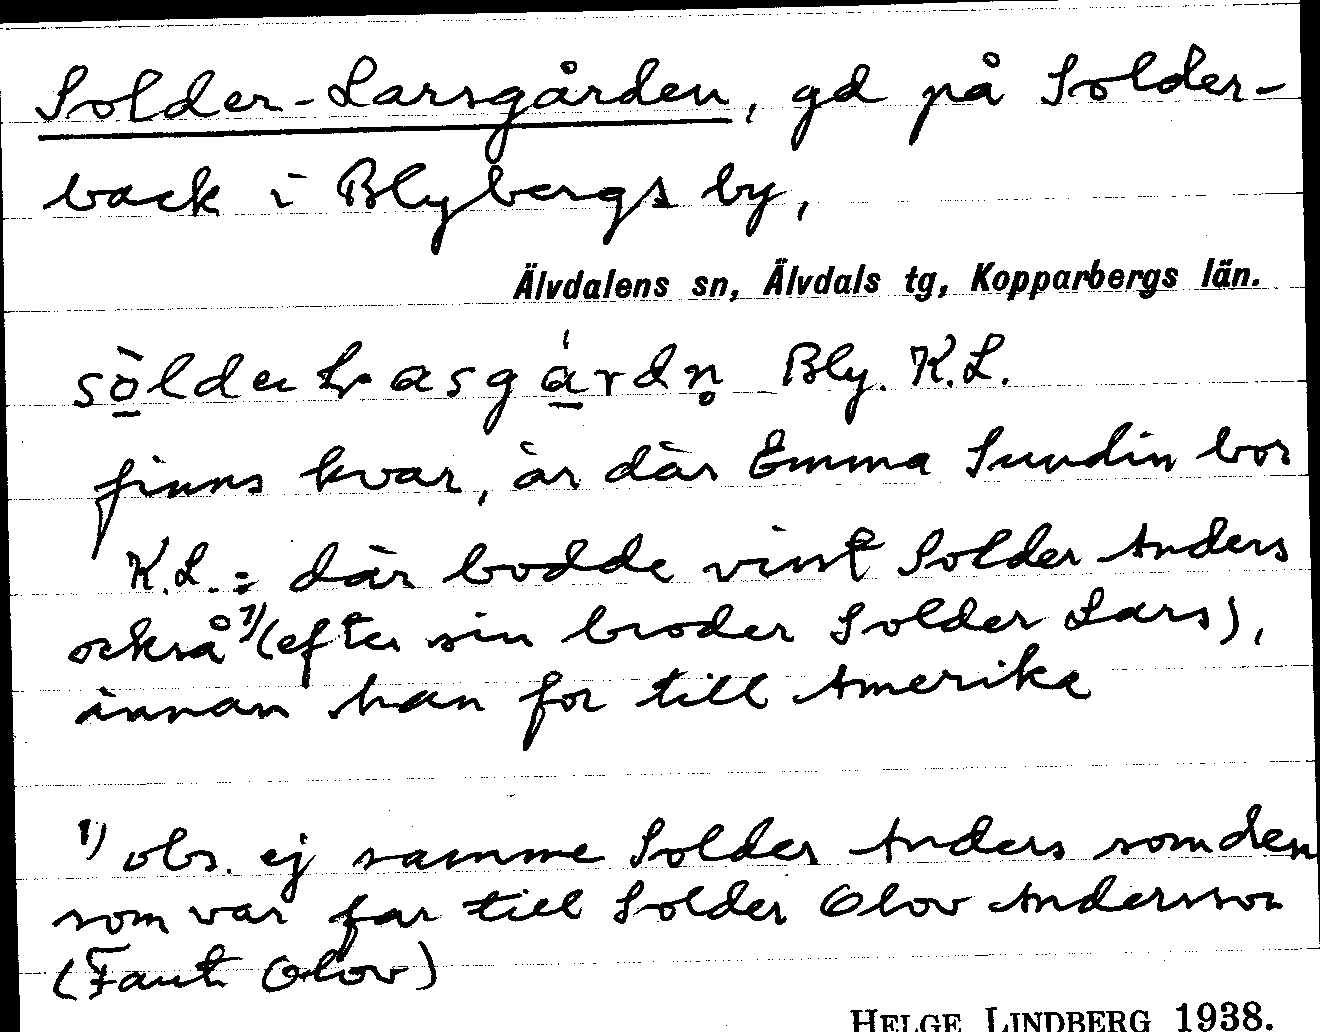 Solder-Larsgården, gd på Solder-
back i Blybergs by,
Älvdalens sn, Älvdals tg, Kopparbergs län.
Bly. K.L.
finns kvar, är där Emma Sundin bor
K.L.: där bodde visst Solder Anders
också 1) (efter sin broder Solder Lars),
innan han for till Amerika
1) obs. ej samme Solder Anders som den
som var far till Solder Olov Andersson
(Faut Olov)
HELGE LINDBERG 1938.